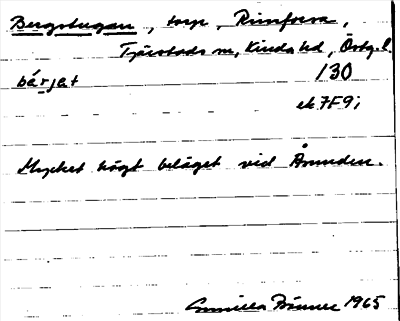 Bergstugan, torp, Rimforsa,
Tjärstads sn, Kinda hd, Östg. l.
bárjət 130
ek 7F9i
Mycket högt beläget vid Åsunden.
Gunilla 1965